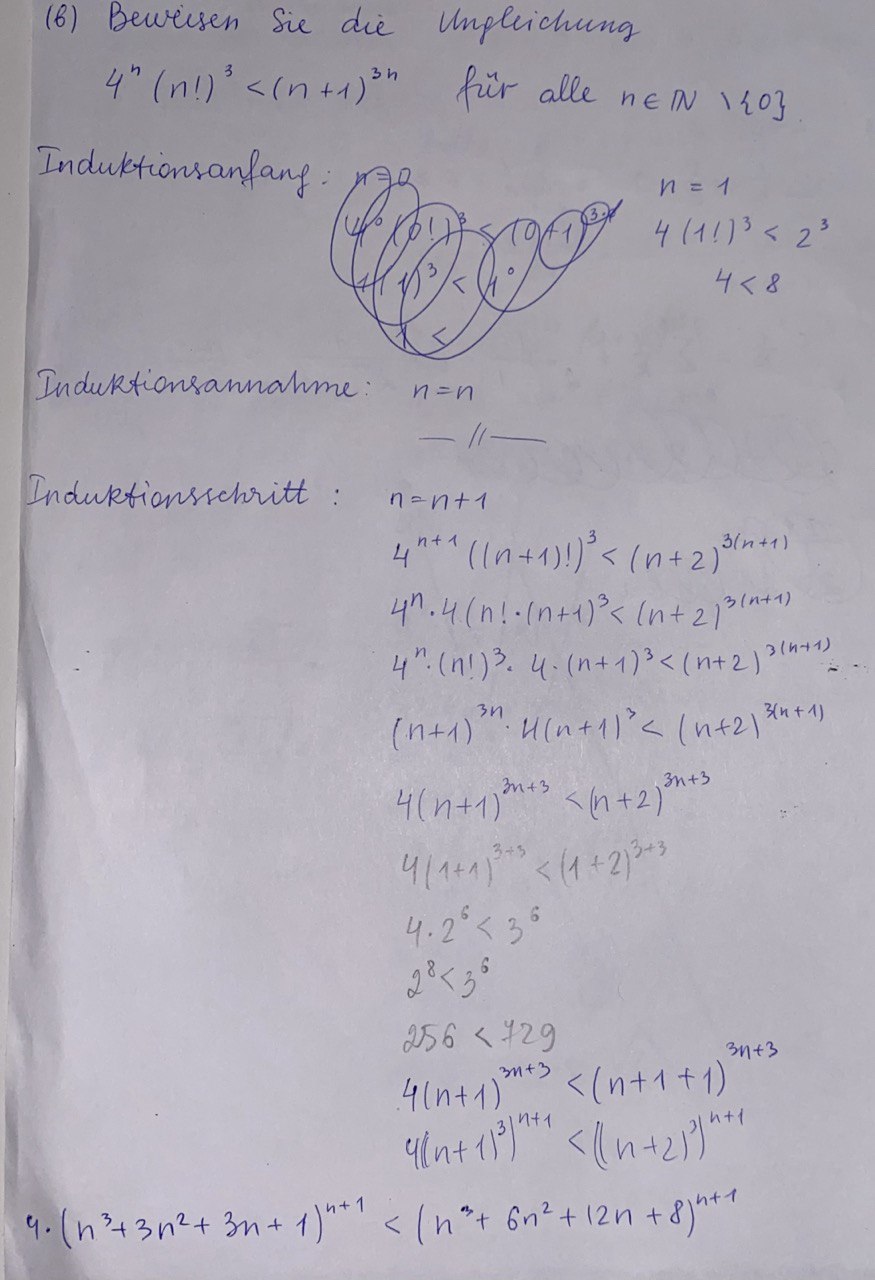 (b) Beweisen Sie die Ungleichung
4ⁿ (n!)³ < (n+1)³ⁿ für alle n ∈ ℕ \ {0}.
Induktionsanfang: n=0
n = 1
4⁰ (0!)³ < (0+1)
4 (1!)³ < 2³
(1)³ < 1⁰
4 < 8
1 <
Induktionsannahme: n=n
— // —
Induktionsschritt: n=n+1
4ⁿ⁺¹ ((n+1)!)³ < (n+2)³⁽ⁿ⁺¹⁾
4ⁿ·4(n!·(n+1)³ < (n+2)³⁽ⁿ⁺¹⁾
4ⁿ·(n!)³· 4·(n+1)³ < (n+2)³⁽ⁿ⁺¹⁾
(n+1)³ⁿ· 4(n+1)³ < (n+2)³⁽ⁿ⁺¹⁾
4(n+1)³ⁿ⁺³ < (n+2)³ⁿ⁺³
4(1+1)³⁺³ < (1+2)³⁺³
4·2⁶ < 3⁶
2⁸ < 3⁶
256 < 729
4(n+1)³ⁿ⁺³ < (n+1+1)³ⁿ⁺³
4((n+1)³)ⁿ⁺¹ < ((n+2)³)ⁿ⁺¹
4·(n³+3n²+3n+1)ⁿ⁺¹ < (n³+6n²+12n+8)ⁿ⁺¹